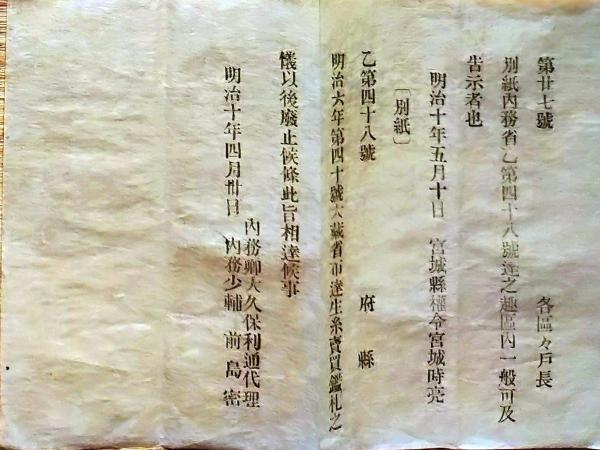 第廿七號 各區々戸長
別紙內務省乙第四十八號達之趣區內一般可及
告示者也
明治十年五月十日 宮城縣權令宮城時亮
〔別紙〕
乙第四十八號 府縣
明治六年第四十號大藏省布達生糸賣買鑑札之
儀以後廢止候條此旨相達候事
明治十年四月卅日 內務卿大久保利通代理
內務少輔 前島密